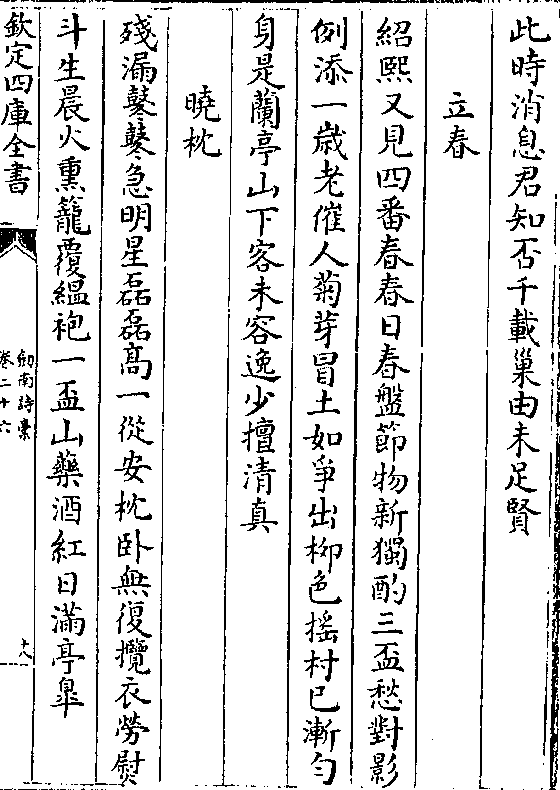 此時消息君知否千載巢由未足賢
立春
紹熙又見四番春春日春盤節物新獨酌三盃愁對影
例添一歳老催人菊芽冒土如爭出栁色揺村已漸勻
身是蘭亭山下客未容逸少擅清真
曉枕
殘漏鼕鼕急明星磊磊髙一從安枕卧無復攬衣勞熨
斗生晨火熏籠覆緼袍一盃山藥酒紅日滿亭臯
欽定四庫全書
劒南詩槀
卷二十六